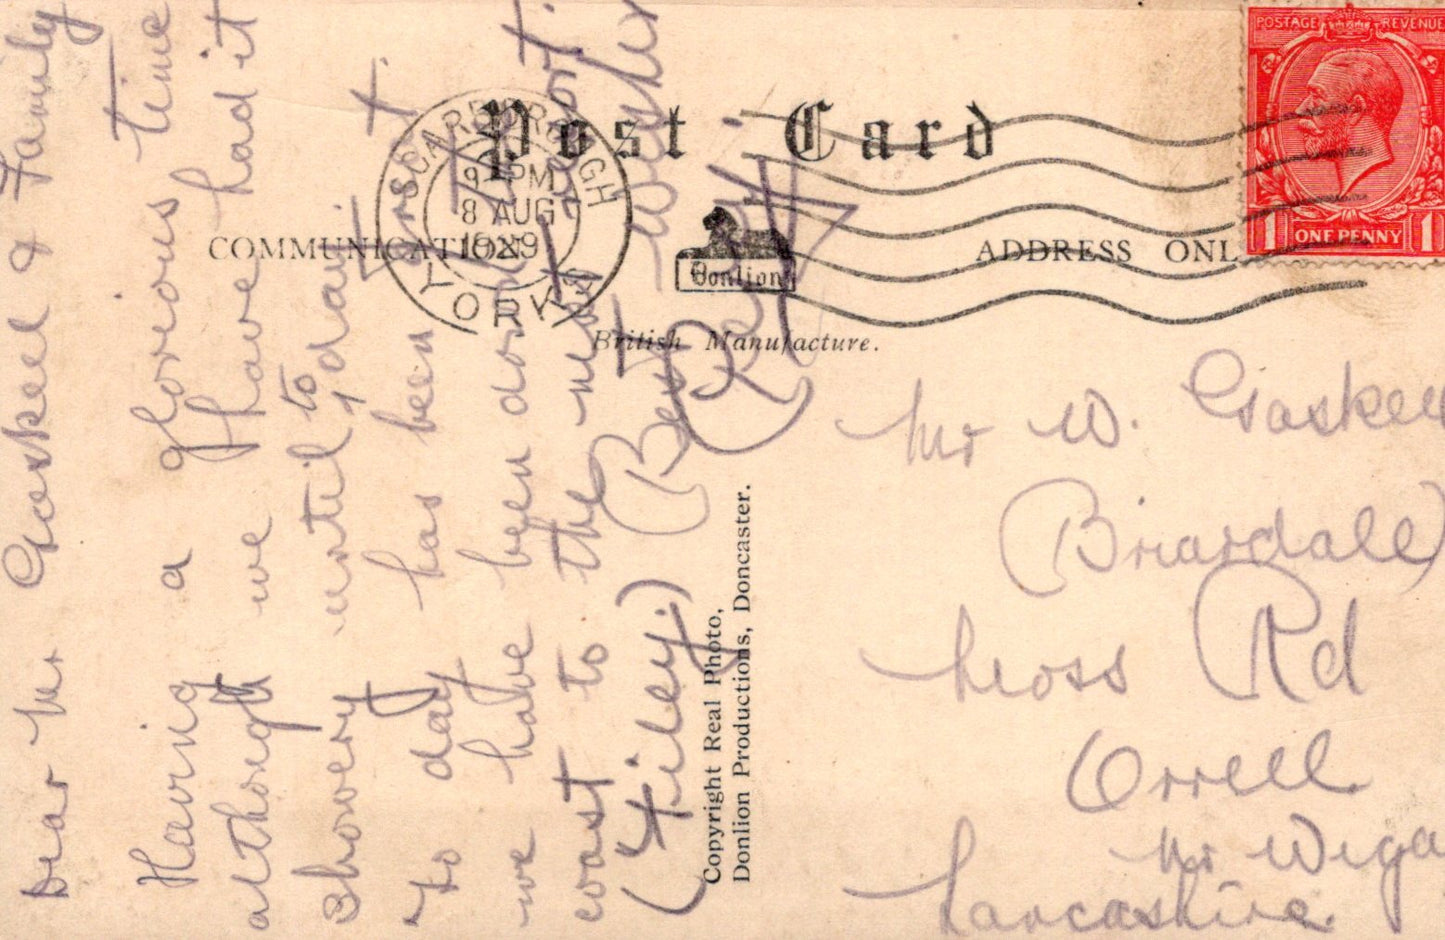 Post Card
COMMUNICATION
ADDRESS ONL
British Manufacture.
Donlion
POSTAGE REVENUE
1 ONE PENNY 1
SCARBOROUGH
9 PM
8 AUG
1929
YORKS
Dear Mr Gaskell & Family
Having a glorious time
although we have had it
showery until to day, it
to day has been first
we have been down the
coast to the next
(Filey.) Best Wishes
(Reg)
Mr W. Gaskell
(Briardale)
Moss Rd
Orrell
Nr Wiga
Lancashire.
Copyright Real Photo,
Donlion Productions, Doncaster.